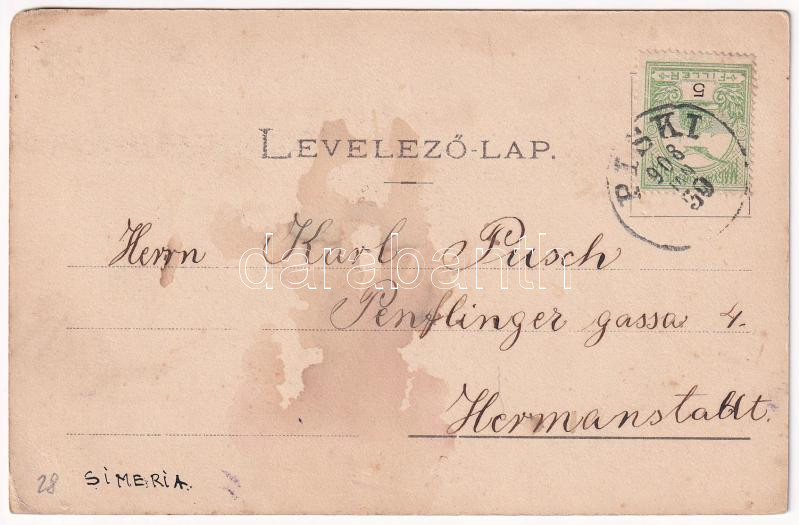 5
FILLER
LEVELEZŐ-LAP.
PISKI
908
Herrn Karl Pusch
darabanth
Penflinger gassa 4.
Hermanstadt.
28 SIMERIA